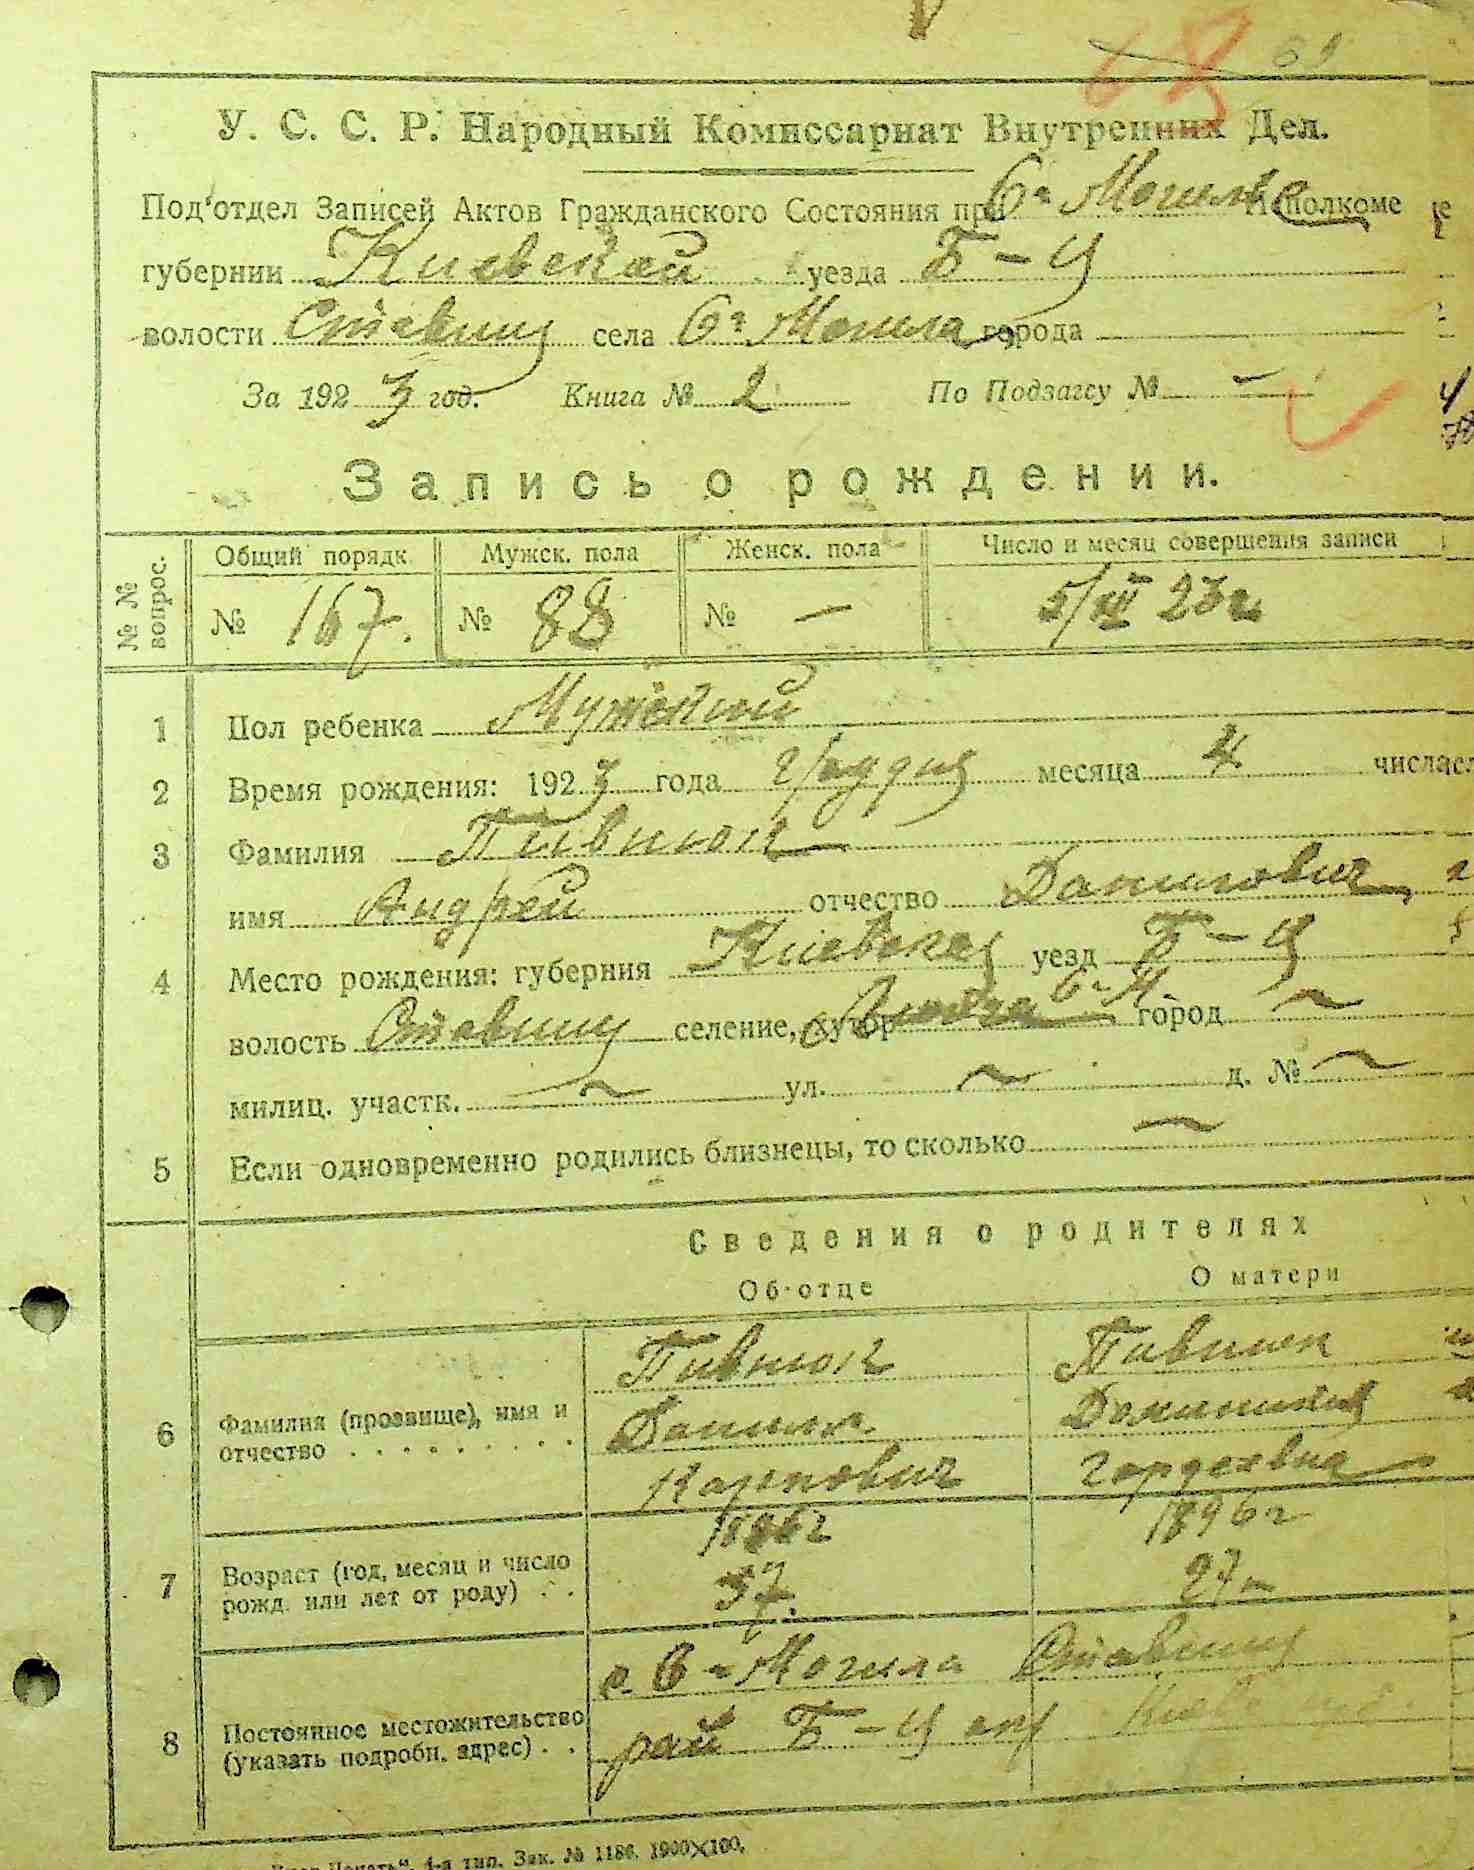 68
У. С. С. Р. Народный Комиссариат Внутренних Дел.
Под'отдел Записей Актов Гражданского Состояния при Исполкоме
губернии Киевской уезда Б-Ц
волости Ставищ села Могила города
За 1923 год. Книга № 2 По Подзагсу № -
Запись о рождении.
№ № вопрос.
Общий порядк. Мужск. пола Женск. пола Число и месяц совершения записи
№ 167. № 88 № — 5/XII 23 г.
1 Пол ребенка Мужской
2 Время рождения: 1923 года грудня месяца 4 числа
3 Фамилия Пивнюк
имя Андрей отчество Данилович
4 Место рождения: губерния Киевская уезд Б-Ц
волость Ставищ селение, хутор город ~
милиц. участк. ~ ул. ~ д. № ~
5 Если одновременно родились близнецы, то сколько ~
Сведения о родителях
Об отце О матери
6 Фамилия (прозвище), имя и отчество
Пивнюк Пивнюк
Данило
Карпович Гордеевна
7 Возраст (год, месяц и число рожд. или лет от роду)
1896 г
37. 27
8 Постоянное местожительство (указать подробн. адрес)
с. Могила Ставищ
рай Б-Ц окр
4-я тип. Зак. № 1186. 1000×100.